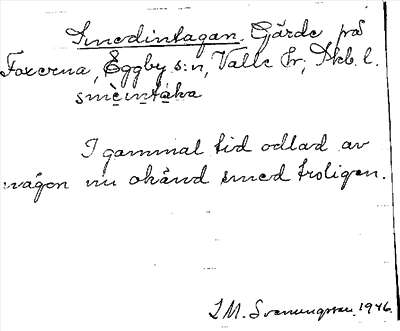 Smedintagan. Gärde på
Foxerna, Eggby s:n, Valle hr, Skb. l.
smèintáka
I gammal tid odlad av
någon nu okänd smed troligen.
I.M. Svenungsson 1946.